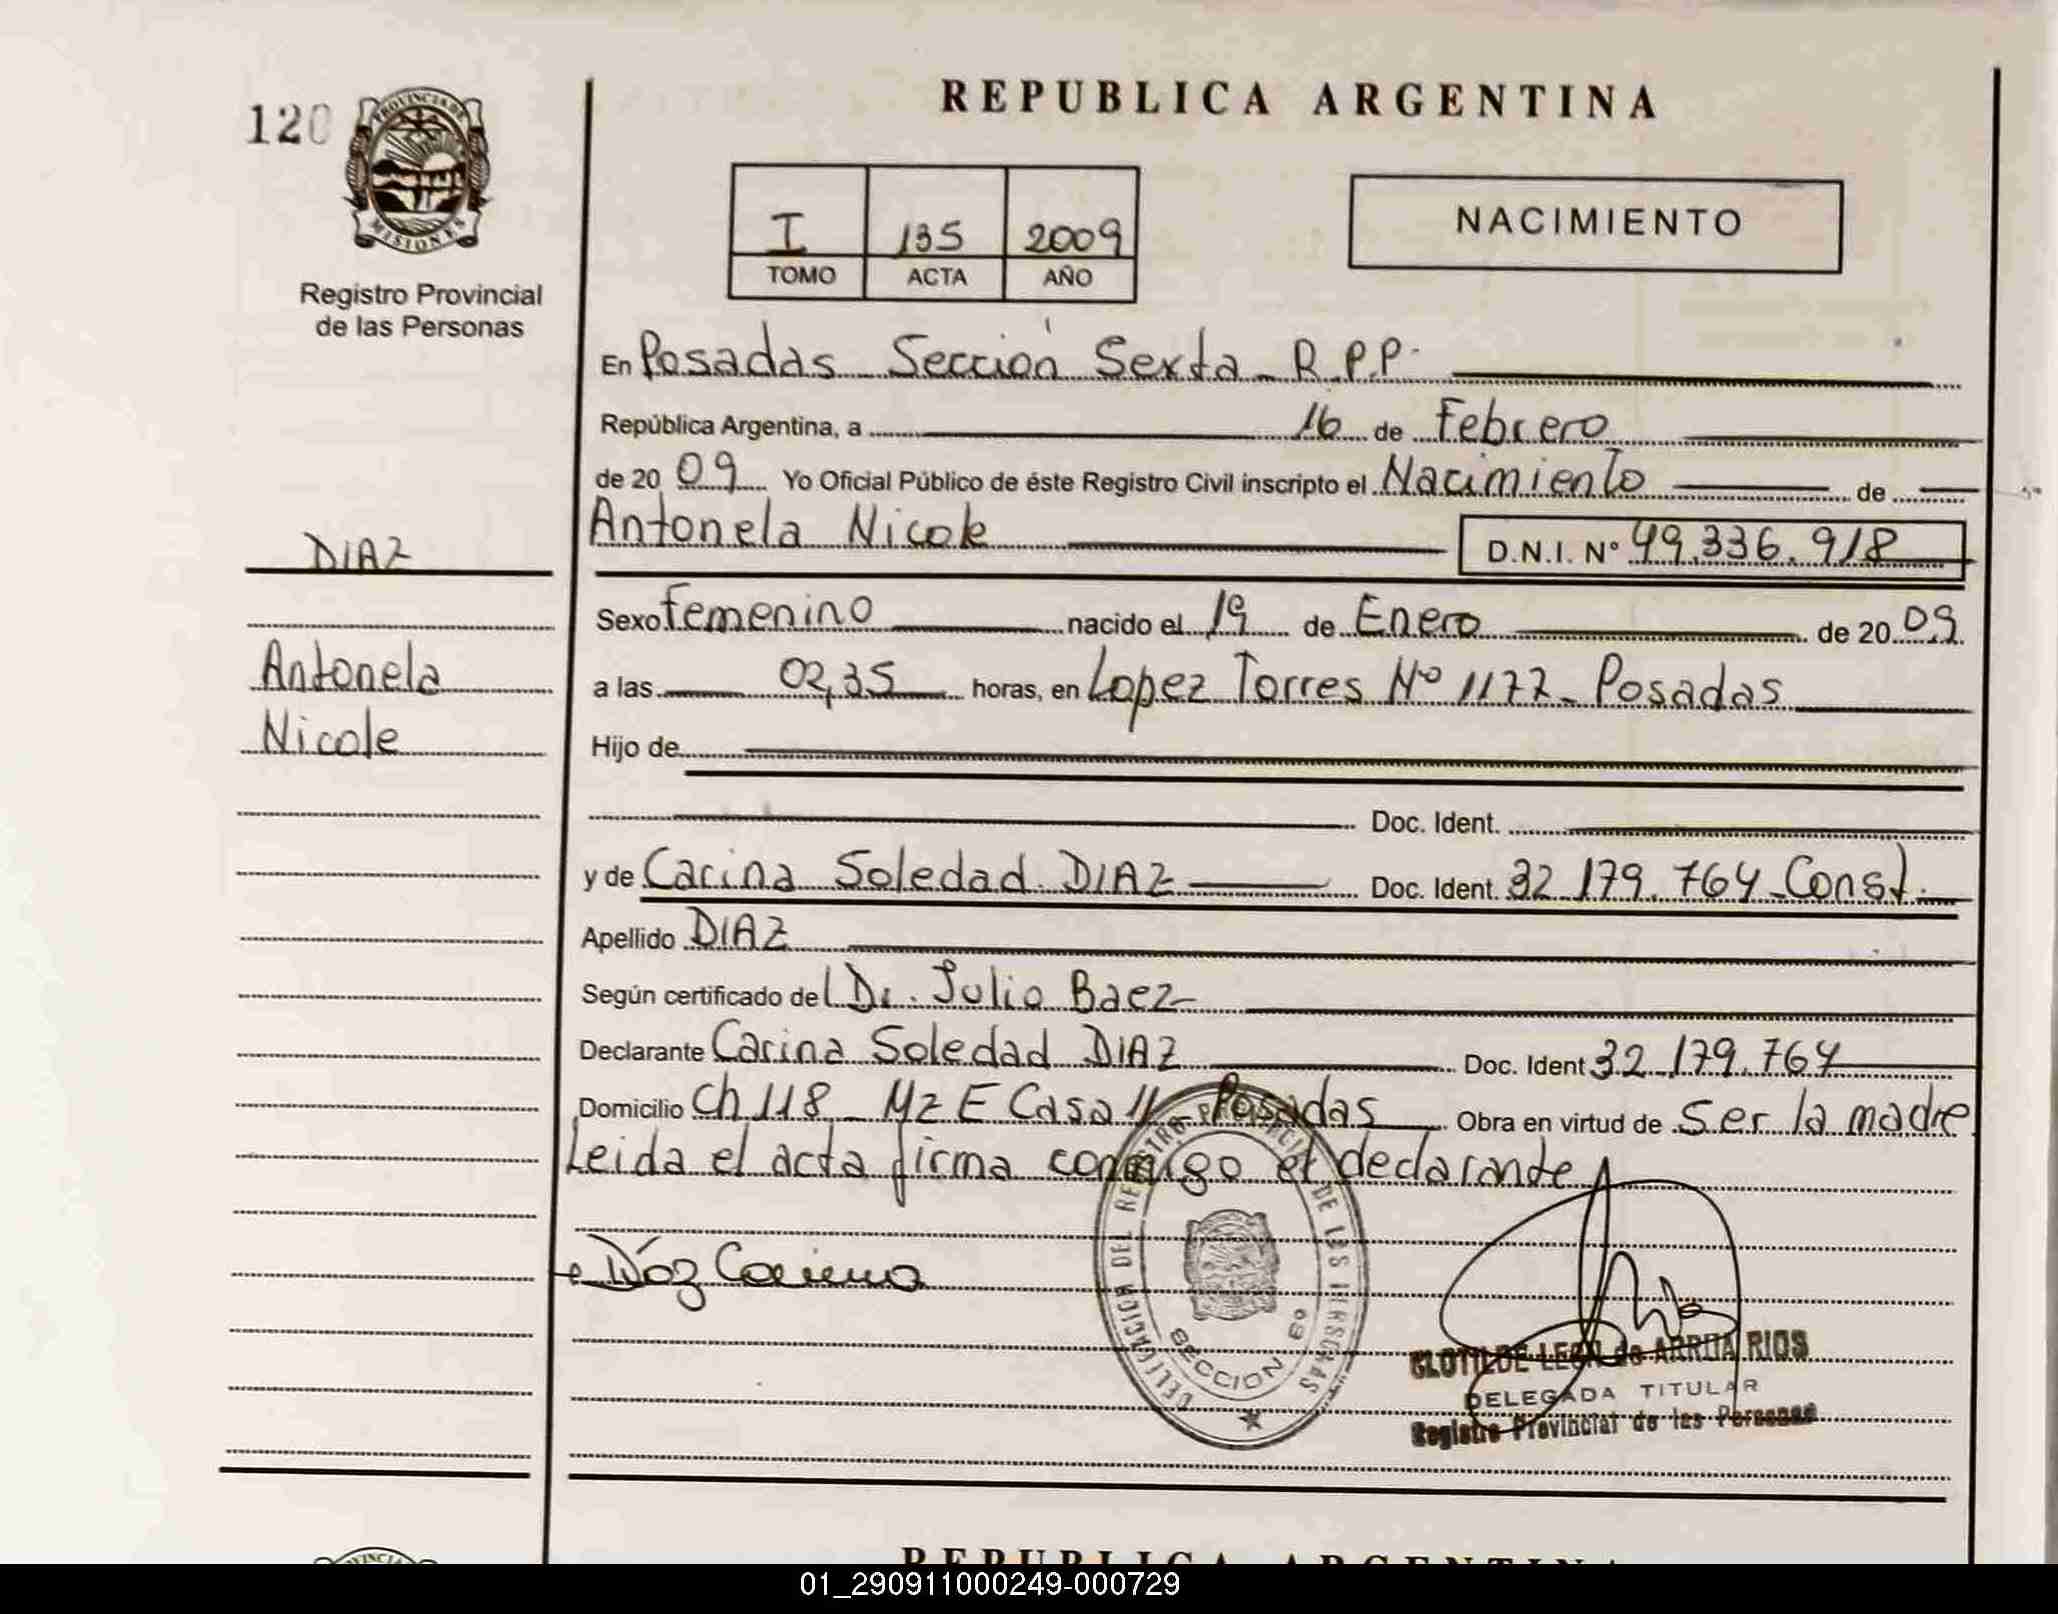 REPUBLICA ARGENTINA
120
PROVINCIA DE
MISIONES
Registro Provincial
de las Personas
I 135 2009
TOMO ACTA AÑO
NACIMIENTO
En Posadas Sección Sexta R.P.P.
República Argentina, a 16 de Febrero
de 20 09 Yo Oficial Público de éste Registro Civil inscripto el Nacimiento de
Antonela Nicole D.N.I. Nº 49.336.918
DIAZ
Antonela
Nicole
Sexo Femenino nacido el 19 de Enero de 20 09
a las 02,35 horas, en Lopez Torres Nº 1177 - Posadas
Hijo de
Doc. Ident.
y de Carina Soledad DIAZ Doc. Ident. 32.179.764 - Const.
Apellido DIAZ
Según certificado del Dr. Julio Baez
Declarante Carina Soledad DIAZ Doc. Ident 32.179.764
Domicilio Ch 118 - Mz E Casa 11 - Posadas Obra en virtud de ser la madre
Leida el acta firma conmigo el declarante
Díaz Carina
DELEGACION DEL REGISTRO PROVINCIAL DE LAS PERSONAS
SECCION 6º
CLOTILDE LEON de ARRUA RIOS
DELEGADA TITULAR
Registro Provincial de las Personas
REPUBLICA ARGENTINA
01_290911000249-000729